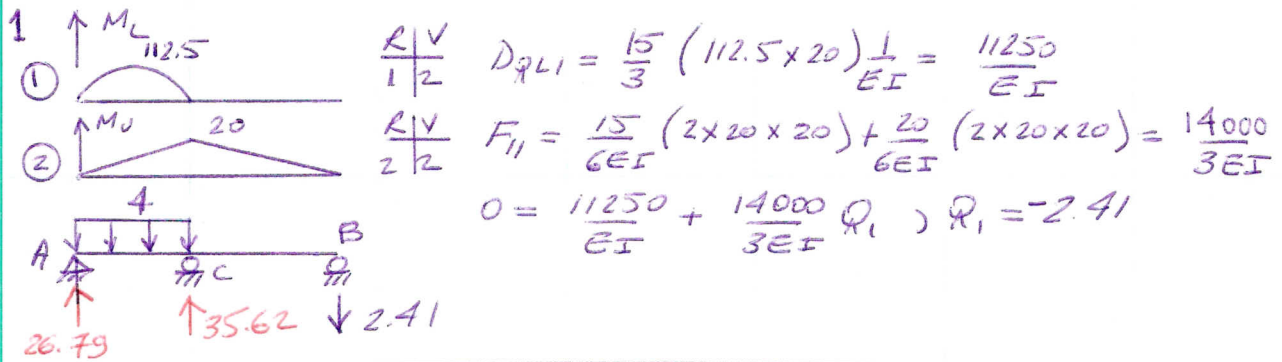 1
M_L
112.5
R | V
1 | 2
D_QL1 = 15/3 (112.5 x 20) 1/EI = 11250/EI
①
M_U
20
R | V
2 | 2
F_11 = 15/6EI (2 x 20 x 20) + 20/6EI (2 x 20 x 20) = 14000/3EI
②
4
0 = 11250/EI + 14000/3EI Q_1 , Q_1 = -2.41
A
C
B
26.79
35.62
2.41